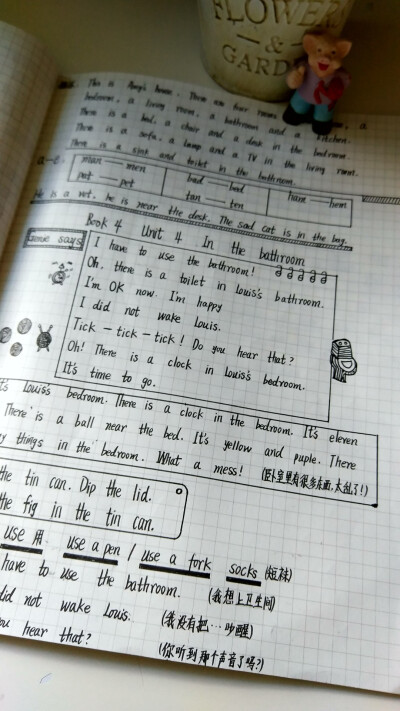 FLOWER
&
GARD
This is Amy's house. There are four rooms
bedroom, a living room, a bathroom and a kitchen.
There is a bed, a chair and a desk in the bedroom.
There is a sofa, a lamp and a TV in the living room.
There is a sink and toilet in the bathroom.
a-e
man — men
pat — pet
bad — bed
tan — ten
ham — hem
He is a vet, he is near the desk. The sad cat is in the bag.
Book 4 Unit 4 In the bathroom
says
I have to use the bathroom!
Oh, there is a toilet in Louis's bathroom.
I'm OK now. I'm happy
I did not wake Louis.
Tick - tick - tick! Do you hear that?
Oh! There is a clock in Louis's bedroom.
It's time to go.
It's Louis's bedroom. There is a clock in the bedroom. It's eleven
There is a ball near the bed. It's yellow and puple. There
y things in the bedroom. What a mess! (卧室里有很多东西,太乱了!)
the tin can. Dip the lid.
the fig in the tin can.
use 用 use a pen / use a fork socks (短袜)
have to use the bathroom. (我想上卫生间)
did not wake Louis. (我没有把…吵醒)
you hear that? (你听到那个声音了吗?)